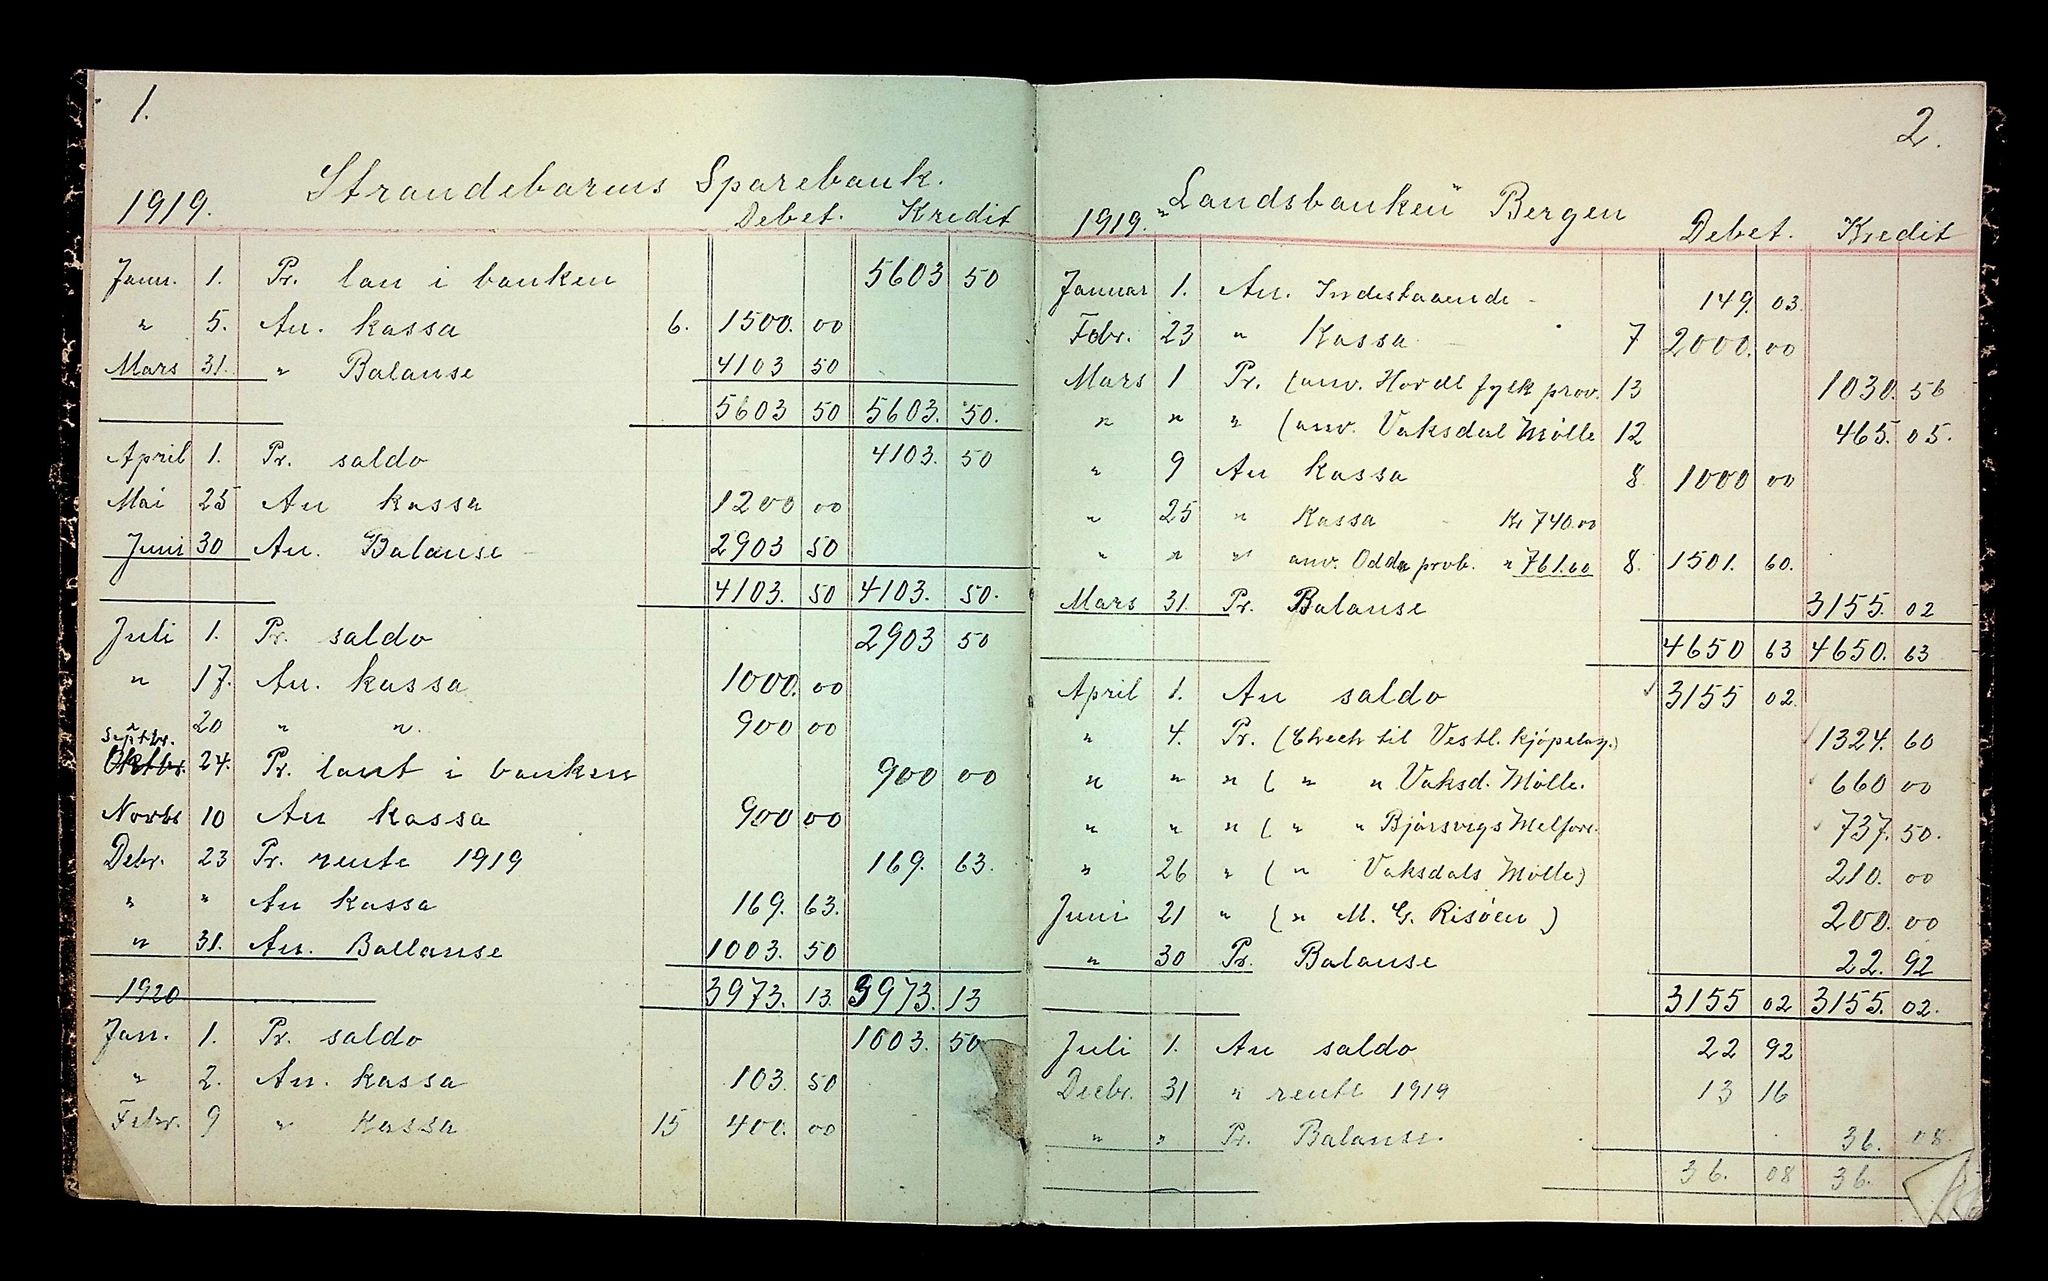 1.
Strandebarms Sparebank.
1919. Debet. Kredit
Janu. 1. Pr. lan i banken 5603 50
" 5. An. kassa 6. 1500. 00
Mars 31. " Balanse 4103 50
5603 50 5603. 50.
April 1. Pr. saldo 4103. 50
Mai 25 An kassa 1200 00
Juni 30 An. Balanse 2903 50
4103. 50 4103. 50.
Juli 1. Pr. saldo 2903 50
" 17. An. kassa 1000. 00
" 20 " " 900 00
Septbr. 24. Pr. lant i banken 900 00
Novbr 10 An kassa 900 00
Debr. 23 Pr. rente 1919 169. 63.
" " An kassa 169. 63.
" 31. An. Ballanse 1003. 50
3973. 13. 3973. 13
1920
Jan. 1. Pr. saldo 1003. 50
" 2. An. kassa 103. 50
Febr. 9 " Kassa 15 400. 00
2.
"Landsbanken" Bergen
1919. Debet. Kredit
Januar 1. An. Indestaaende 149. 03
Febr. 23 " Kassa 7 2000. 00
Mars 1 Pr. (anv. Hordl fylk prov. 13 1030. 56
" " " (anv. Vaksdal Mølle 12 465. 05.
" 9 An kassa 8 1000 00
" 25 " Kassa Kr 740.00
" " " anv. Odda prov. " 761.60 8. 1501. 60.
Mars 31. Pr. Balanse 3155. 02
4650 63 4650. 63
April 1. An saldo 3155 02.
" 4. Pr. (Check til Vestl. kjøpelag.) 1324. 60
" " " ( " " Vaksd. Mølle. 660 00
" " " ( " " Bjørsvigs Melforr. 737. 50.
" 26 " ( " Vaksdals Mølle) 210. 00
Juni 21 " (" M. G. Risøen ) 200. 00
" 30 Pr. Balanse 22. 92
3155 02 3155. 02.
Juli 1. An saldo 22 92
Decbr. 31 " rente 1919 13 16
" " Pr. Balanse. 36. 08
36. 08 36.